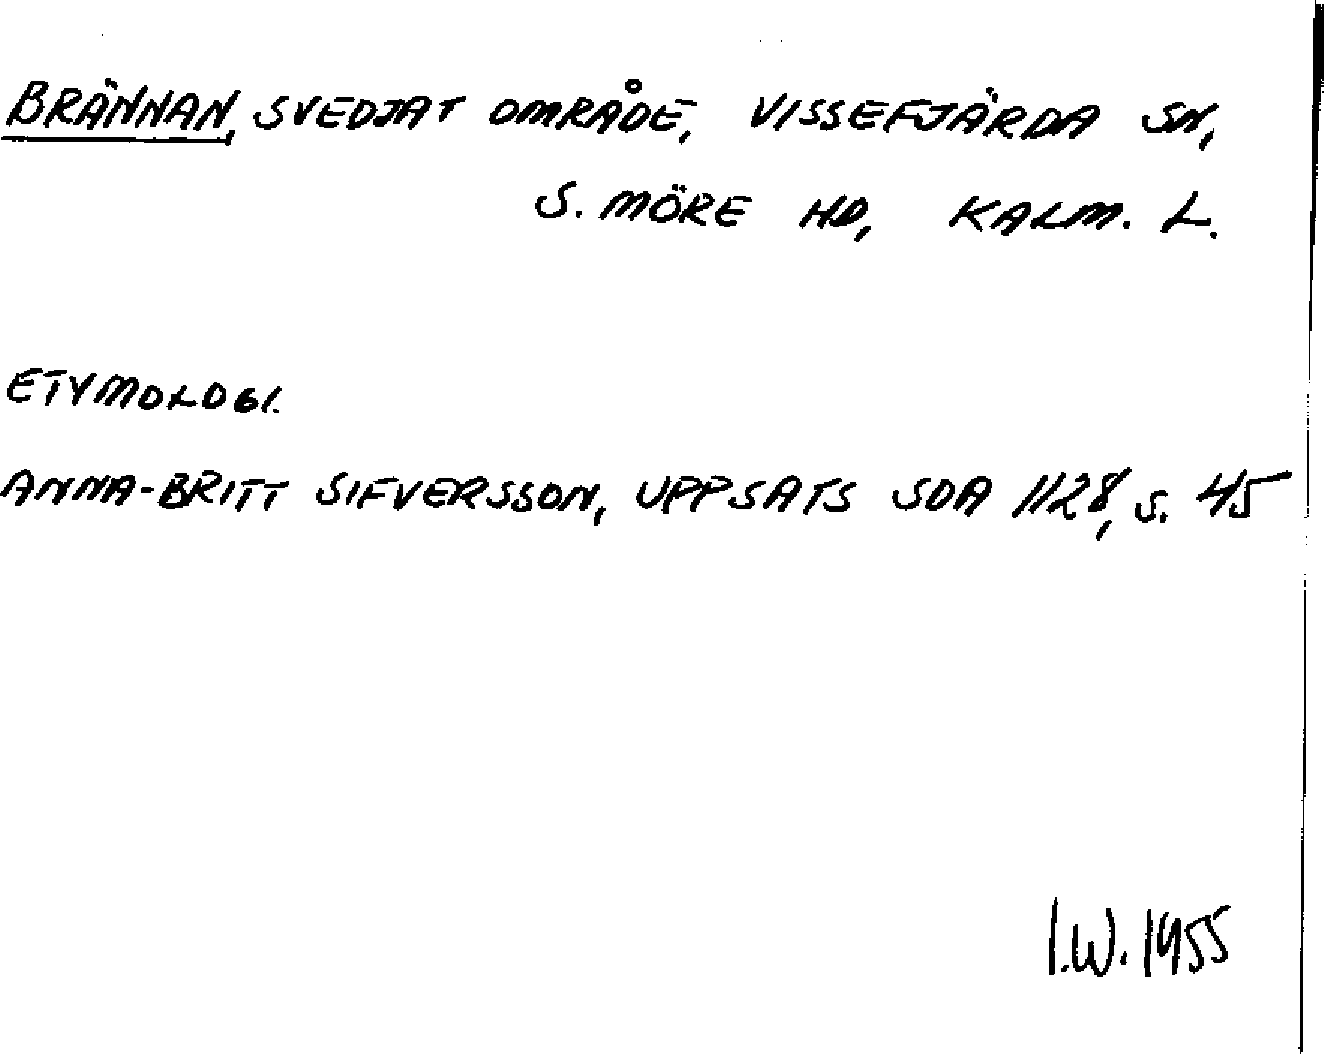 BRÄNNAN, SVEDJAT OMRÅDE, VISSEFJÄRDA SN,
S. MÖRE HD, KALM. L.
ETYMOLOGI.
ANNA-BRITT SIFVERSSON, UPPSATS SOA 1128, S. 45
I.W. 1955